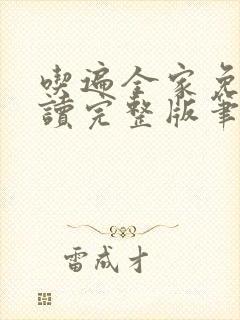 喫遍全家免
讀完整版筆
雷成才